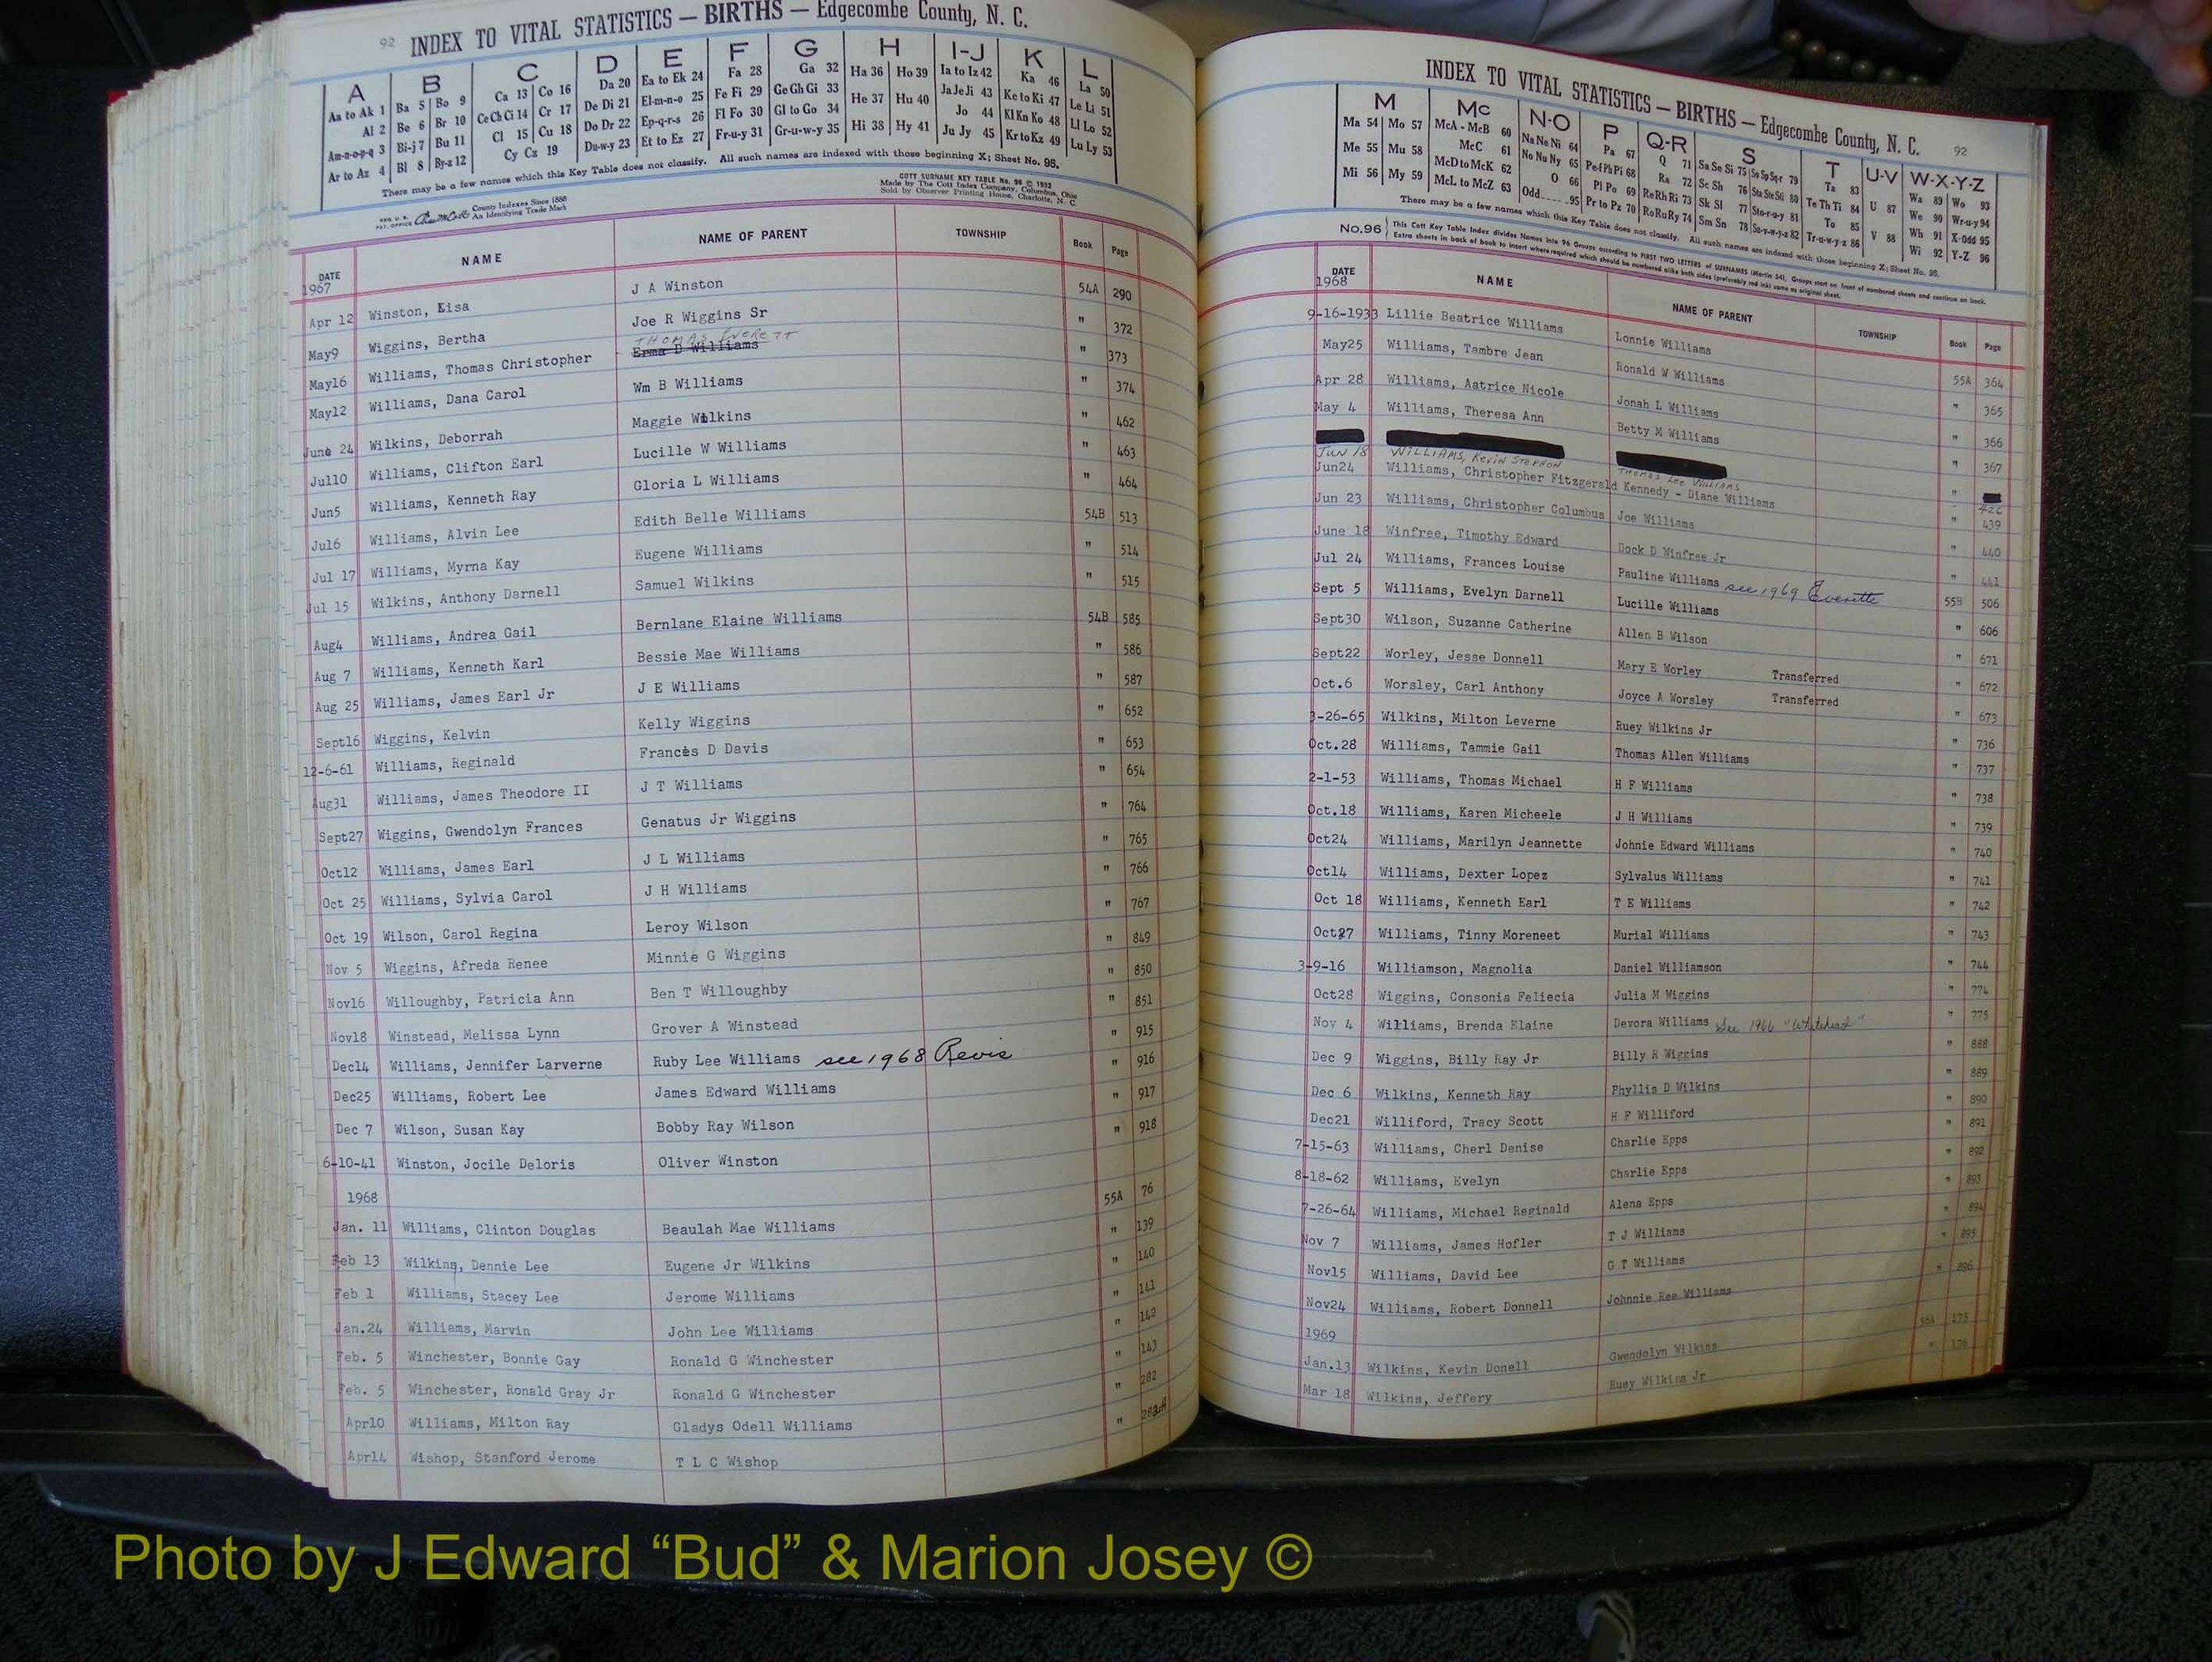 92 INDEX TO VITAL STATISTICS — BIRTHS — Edgecombe County, N. C.
A B C D E F G H I-J K L
Aa to Ak 1 Ba 5 Bo 9 Ca 13 Co 16 Da 20 Ea to Ek 24 Fa 28 Ga 32 Ha 36 Ho 39 Ia to Iz 42 Ka 46 La 50
Al 2 Be 6 Br 10 Ce Ch Ci 14 Cr 17 De Di 21 El-m-n-o 25 Fe Fi 29 Ge Gh Gi 33 He 37 Hu 40 Ja Je Ji 43 Ke to Ki 47 Le Li 51
Am-n-o-p-q 3 Bi-j 7 Bu 11 Cl 15 Cu 18 Do Dr 22 Ep-q-r-s 26 Fl Fo 30 Gl to Go 34 Hi 38 Hy 41 Jo 44 Kl Kn Ko 48 Ll Lo 52
Ar to Az 4 Bl 8 By-z 12 Cy Cz 19 Du-w-y 23 Et to Ez 27 Fr-u-y 31 Gr-u-w-y 35 Ju Jy 45 Kr to Kz 49 Lu Ly 53
There may be a few names which this Key Table does not classify. All such names are indexed with those beginning X; Sheet No. 95.
COTT SURNAME KEY TABLE No. 96 © 1953
Made by The Cott Index Company, Columbus, Ohio
Sold by Observer Printing House, Charlotte, N. C.
REG. U. S. PAT. OFFICE County Indexes Since 1888 An Identifying Trade Mark
DATE NAME NAME OF PARENT TOWNSHIP Book Page
1967
Apr 12 Winston, Eisa J A Winston 54A 290
May9 Wiggins, Bertha Joe R Wiggins Sr " 372
THOMAS EVERETT
May16 Williams, Thomas Christopher Erma D Williams " 373
May12 Williams, Dana Carol Wm B Williams " 374
June 24 Wilkins, Deborrah Maggie Wilkins " 462
Jul10 Williams, Clifton Earl Lucille W Williams " 463
Jun5 Williams, Kenneth Ray Gloria L Williams " 464
Jul6 Williams, Alvin Lee Edith Belle Williams 54B 513
Jul 17 Williams, Myrna Kay Eugene Williams " 514
Jul 15 Wilkins, Anthony Darnell Samuel Wilkins " 515
Aug4 Williams, Andrea Gail Bernlane Elaine Williams 54B 585
Aug 7 Williams, Kenneth Karl Bessie Mae Williams " 586
Aug 25 Williams, James Earl Jr J E Williams " 587
Sept16 Wiggins, Kelvin Kelly Wiggins " 652
12-6-61 Williams, Reginald Frances D Davis " 653
Aug31 Williams, James Theodore II J T Williams " 654
Sept27 Wiggins, Gwendolyn Frances Genatus Jr Wiggins " 764
Oct12 Williams, James Earl J L Williams " 765
Oct 25 Williams, Sylvia Carol J H Williams " 766
Oct 19 Wilson, Carol Regina Leroy Wilson " 767
Nov 5 Wiggins, Afreda Renee Minnie G Wiggins " 849
Nov16 Willoughby, Patricia Ann Ben T Willoughby " 850
Nov18 Winstead, Melissa Lynn Grover A Winstead " 851
Dec14 Williams, Jennifer Larverne Ruby Lee Williams see 1968 Revis " 915
Dec25 Williams, Robert Lee James Edward Williams " 916
Dec 7 Wilson, Susan Kay Bobby Ray Wilson " 917
6-10-41 Winston, Jocile Deloris Oliver Winston " 918
1968
Jan. 11 Williams, Clinton Douglas Beaulah Mae Williams 55A 76
Feb 13 Wilkins, Dennie Lee Eugene Jr Wilkins " 139
Feb 1 Williams, Stacey Lee Jerome Williams " 140
Jan.24 Williams, Marvin John Lee Williams " 141
Feb. 5 Winchester, Bonnie Gay Ronald G Winchester " 142
Feb. 5 Winchester, Ronald Gray Jr Ronald G Winchester " 143
Apr10 Williams, Milton Ray Gladys Odell Williams " 282
Apr14 Wishop, Stanford Jerome T L C Wishop "
INDEX TO VITAL STATISTICS — BIRTHS — Edgecombe County, N. C. 92
M Mc N-O P Q-R S T U-V W-X-Y-Z
Ma 54 Mo 57 McA - McB 60 Na Ne Ni 64 Pa 67 Q 71 Sa Se Si 75 So Sp Sq-r 79 Ta 83 U 87 Wa 89 Wo 93
Me 55 Mu 58 McC 61 No Nu Ny 65 Pe-f Ph Pi 68 Ra 72 Sc Sh 76 Sta Ste Sti 80 Te Th Ti 84 V 88 We 90 Wr-u-y 94
Mi 56 My 59 McD to McK 62 O 66 Pl Po 69 Re Rh Ri 73 Sk Sl 77 Sto-r-u-y 81 To 85 Wh 91 X-Odd 95
McL to McZ 63 Odd 95 Pr to Pz 70 Ro Ru Ry 74 Sm Sn 78 Su-v-w-y-z 82 Tr-u-w-y-z 86 Wi 92 Y-Z 96
There may be a few names which this Key Table does not classify. All such names are indexed with those beginning X; Sheet No. 95.
No.96 This Cott Key Table Index divides Names into 96 Groups according to FIRST TWO LETTERS of SURNAMES (Martin 54). Groups start on front of numbered sheets and continue on back.
Extra sheets in back of book to insert where required which should be numbered alike both sides (preferably red ink) same as original sheet.
DATE NAME NAME OF PARENT TOWNSHIP Book Page
1968
9-16-1933 Lillie Beatrice Williams Lonnie Williams 55A 364
May25 Williams, Tambre Jean Ronald W Williams " 365
Apr 28 Williams, Aatrice Nicole Jonah L Williams " 366
May 4 Williams, Theresa Ann Betty M Williams " 367
JUN 18 WILLIAMS, Kevin STEPHON THOMAS Lee WILLIAMS " 426
Jun24 Williams, Christopher Fitzgerald Kennedy - Diane Williams " 439
Jun 23 Williams, Christopher Columbus Joe Williams " 440
June 18 Winfree, Timothy Edward Dock D Winfree Jr " 441
Jul 24 Williams, Frances Louise Pauline Williams see 1969 Everette 55B 506
Sept 5 Williams, Evelyn Darnell Lucille Williams " 606
Sept30 Wilson, Suzanne Catherine Allen B Wilson " 671
Sept22 Worley, Jesse Donnell Mary E Worley Transferred " 672
Oct.6 Worsley, Carl Anthony Joyce A Worsley Transferred " 673
3-26-65 Wilkins, Milton Leverne Ruey Wilkins Jr " 736
Oct.28 Williams, Tammie Gail Thomas Allen Williams " 737
2-1-53 Williams, Thomas Michael H F Williams " 738
Oct.18 Williams, Karen Micheele J H Williams " 739
Oct24 Williams, Marilyn Jeannette Johnie Edward Williams " 740
Oct14 Williams, Dexter Lopez Sylvalus Williams " 741
Oct 18 Williams, Kenneth Earl T E Williams " 742
Oct27 Williams, Tinny Moreneet Murial Williams " 743
3-9-16 Williamson, Magnolia Daniel Williamson " 744
Oct28 Wiggins, Consonia Feliecia Julia M Wiggins " 774
Nov 4 Williams, Brenda Elaine Devora Williams See 1966 "Whitehead" " 775
Dec 9 Wiggins, Billy Ray Jr Billy R Wiggins " 888
Dec 6 Wilkins, Kenneth Ray Phyllis D Wilkins " 889
Dec21 Williford, Tracy Scott H F Williford " 890
7-15-63 Williams, Cherl Denise Charlie Epps " 891
8-18-62 Williams, Evelyn Charlie Epps " 892
7-26-64 Williams, Michael Reginald Alena Epps " 893
Nov 7 Williams, James Hofler T J Williams " 894
Nov15 Williams, David Lee G T Williams " 895
Nov24 Williams, Robert Donnell Johnnie Ree Williams " 896
1969
Jan.13 Wilkins, Kevin Donell Gwendolyn Wilkins 56A 175
Mar 18 Wilkins, Jeffery Ruey Wilkins Jr " 176
Photo by J Edward “Bud” & Marion Josey ©